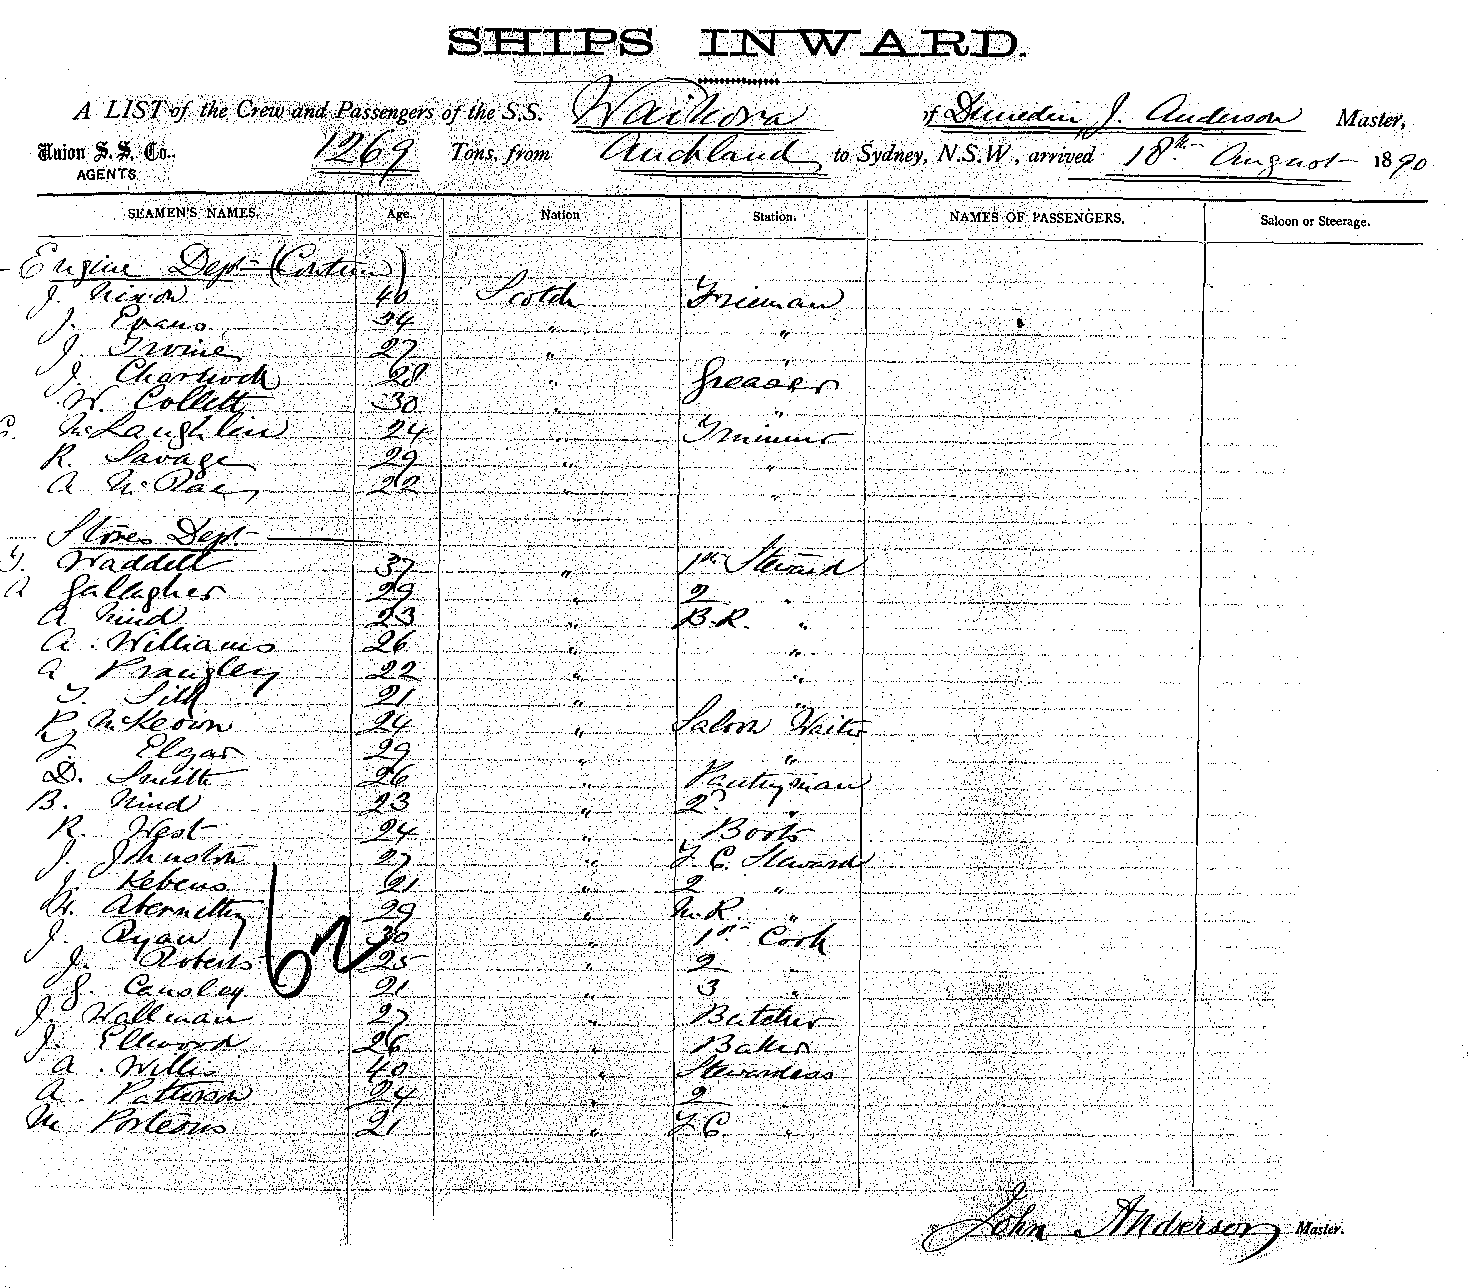 SHIPS INWARD.
A LIST of the Crew and Passengers of the S.S. Waihora of Dunedin, J. Anderson Master,
Union S. S. Co. 1269 Tons, from Auckland to Sydney, N.S.W., arrived 18th August 1890
AGENTS
SEAMEN'S NAMES. Age. Nation Station. NAMES OF PASSENGERS. Saloon or Steerage.
Engine Dept (Contin)
J. Nixon 40 Scotch Fireman
J. Evans 34 " "
J. Irvine 27 " "
J. Charnock 28 " Greaser
W. Collett 30 " "
C. McLaughlin 24 " Trimmer
R. Savage 29 " "
A McRae 22 " "
Stores Dept
T. Waddell 37 " 1st Steward
A Gallagher 29 " 2 "
A Nind 23 " B.R. "
A. Williams 26 " "
A Prangley 22 " "
T. Silk 21 "
R McKeown 24 " Saloon Waiter
Elgar 29 " "
D. Smith 26 " Pantryman
B. Nind 23 " 2 "
R. West 24 " Boots
J. Johnston 27 " F. C. Steward
J. 21 " 2 "
Abernethy 29 " M.R. "
J. Ryan 30 " 1st Cook
J. Roberts 25 " 2 "
Causley 21 " 3 "
J. Wallman 27 " Butcher
J. Ellwood 26 " Baker
A. Willis 40 " Stewardess
A. Patterson 24 " 2 "
M Porteous 21 " F.C. "
John Anderson Master.